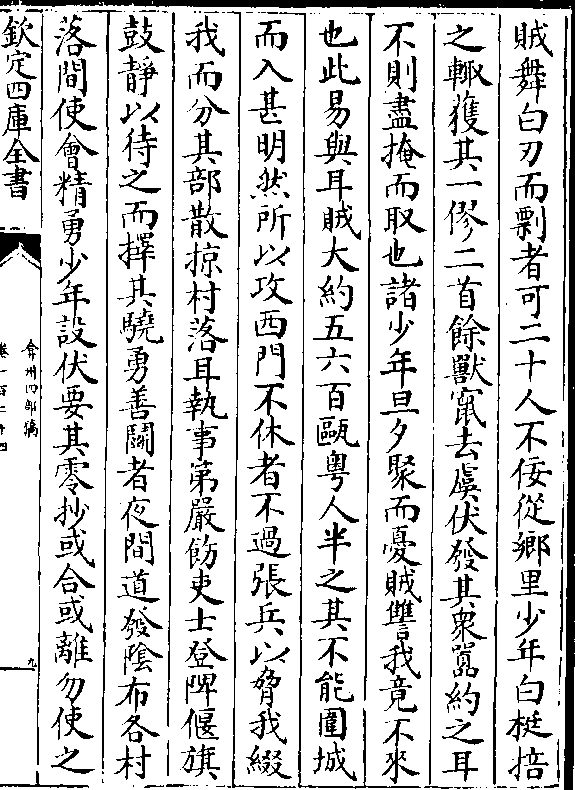 賊舞白刃而剽者可二十人不佞從鄉里少年白梃掊
之輒獲其一僇二首餘獸竄去虞伏發其衆嚣約之耳
不則盡掩而取也諸少年旦夕聚而憂賊讐我竟不來
也此易與耳賊大約五六百甌粤人半之其不能圍城
而入甚明然所以攻西門不休者不過張兵以脅我綴
我而分其部散掠村落耳執事第嚴飭吏士登陴偃旗
鼓靜以待之而擇其驍勇善鬭者夜間道發隂布各村
落間使會精勇少年設伏要其零抄或合或離勿使之
欽定四庫全書
弇州四部稿
卷一百二十四
九